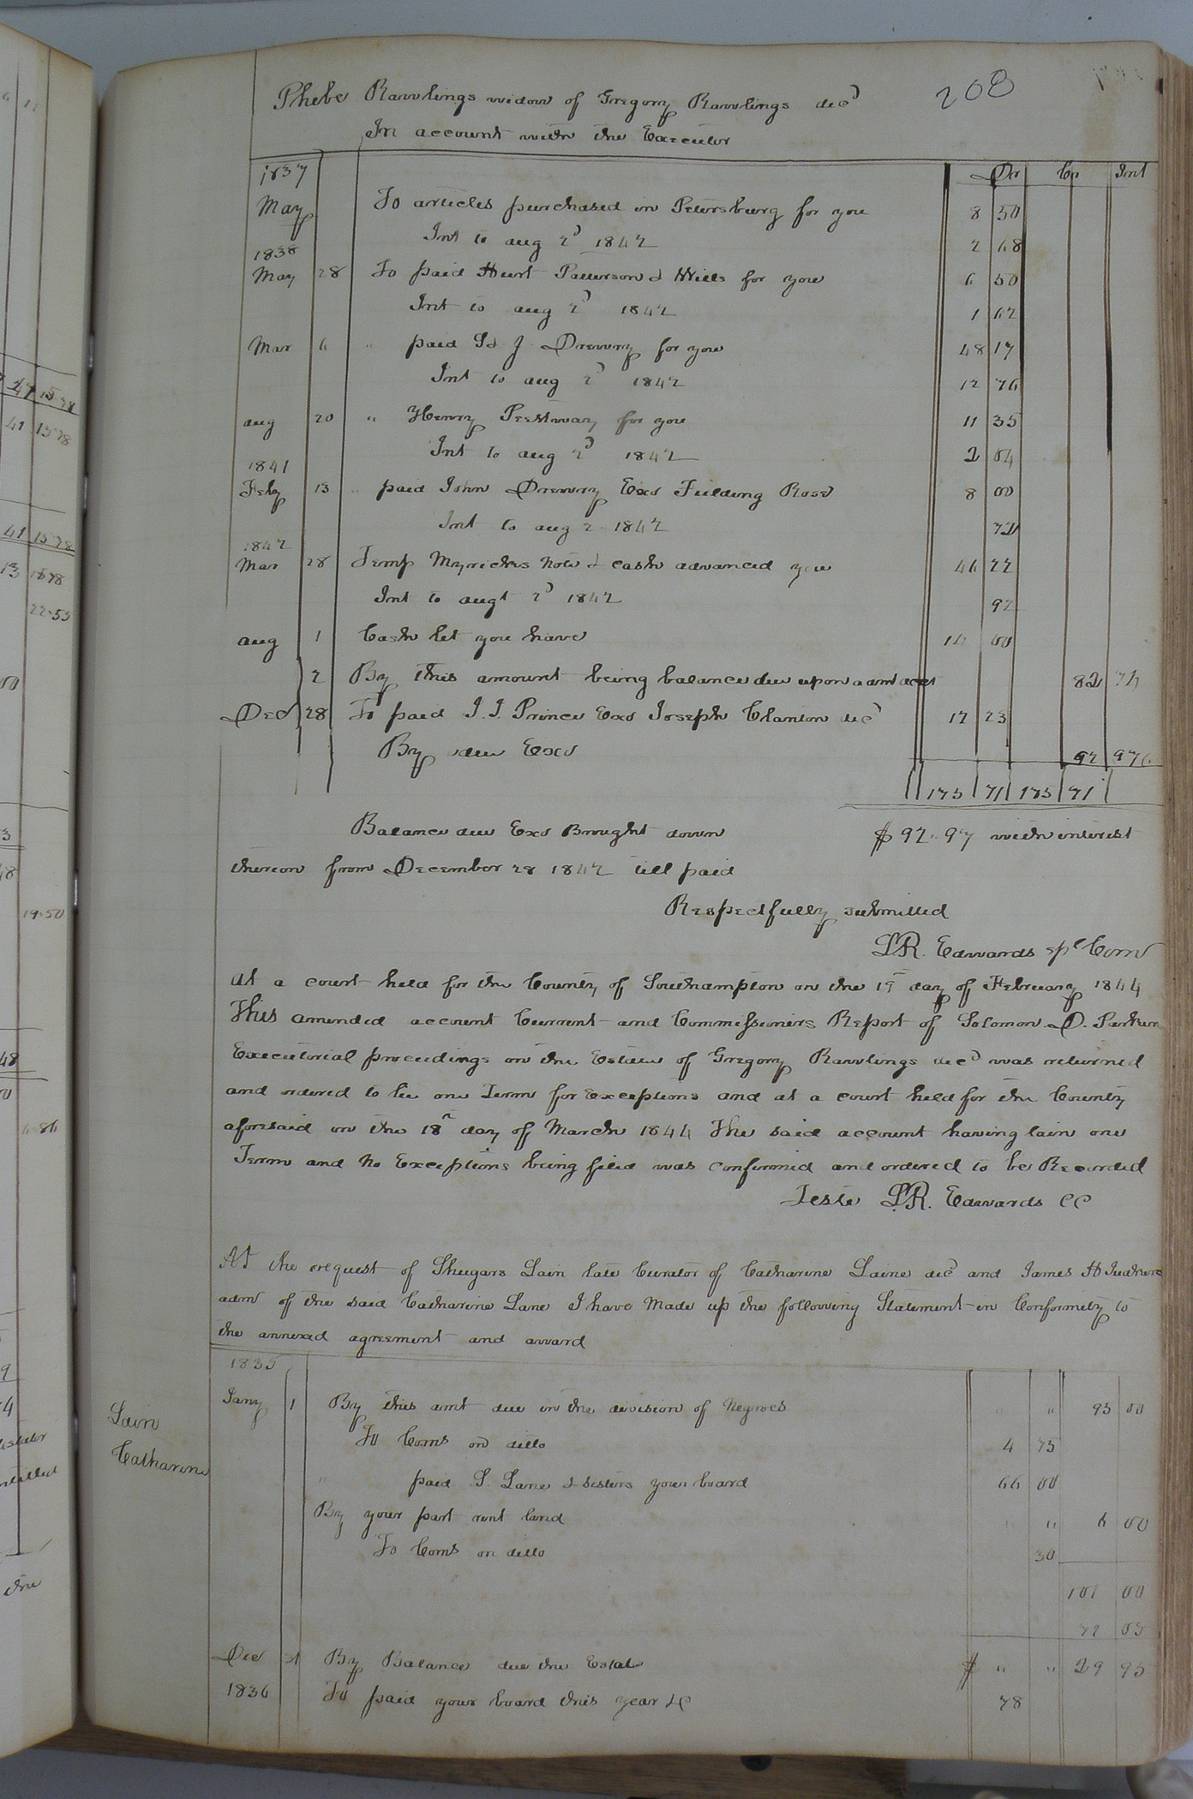 208
Phebe Rawlings widow of Gregory Rawlings decd
In account with the Executor
1837 Dr Cr Int
May To articles purchased in Petersburg for you 8 50
Int to aug 2d 1842 2 68
1838
May 28 To paid Hurt Patterson & Wills for you 6 50
Int to aug 2d 1842 1 62
Mar 6 " paid J Drewry for you 48 17
Int to aug 2d 1842 12 76
aug 20 " Henry Prestwary for you 11 35
Int to aug 2d 1842 2 04
1841
Feby 13 " paid John Drewry Exo Fielding Rose 8 00
Int to aug 2 1842 72
1842
Mar 28 Temp Myricks Note & cash advanced you 46 22
Int to augt 2d 1842 92
aug 1 Cash let you have 00
2 By this amount being balance due upon aamt acct 82 74
Dec 28 To paid J. J. Prince Exo Joseph Clanton decd 12 23
By due Exo 92 97
175 71 175 71
Balance due Exo Brought down $92.97 with interest
thereon from December 28 1842 till paid
Respectfully submitted
L R. Edwards spl Com
At a court held for the County of Southampton on the 19th day of February 1844
This amended account Current and Commissioners Report of Solomon D. Parker
Executorial proceedings on the Estate of Gregory Rawlings decd was returned
and ordered to lie one Term for Exceptions and at a court held for the County
aforesaid on the 18th day of March 1844 The said account having lain one
Term and No Exceptions being filed was confirmed and ordered to be Recorded
Teste L R. Edwards CC
At the request of Shugars Lain late Curator of Catharine Laine decd and James H
adm of the said Catharine Lane I have Made up the following Statement in Conformity to
the annexed agreement and award
Lain
Catharine
1835
Jany 1 By this amt due in the division of Negroes " " 95 00
To Coms on ditto 4 75
" paid S. Lane & sisters your board 66 00
By your part rent land " " 6 00
To Coms on ditto 30
101 00
71 05
Dec 31 By Balance due the Estate $ " " 29 95
1836 To paid your board this year &c 78